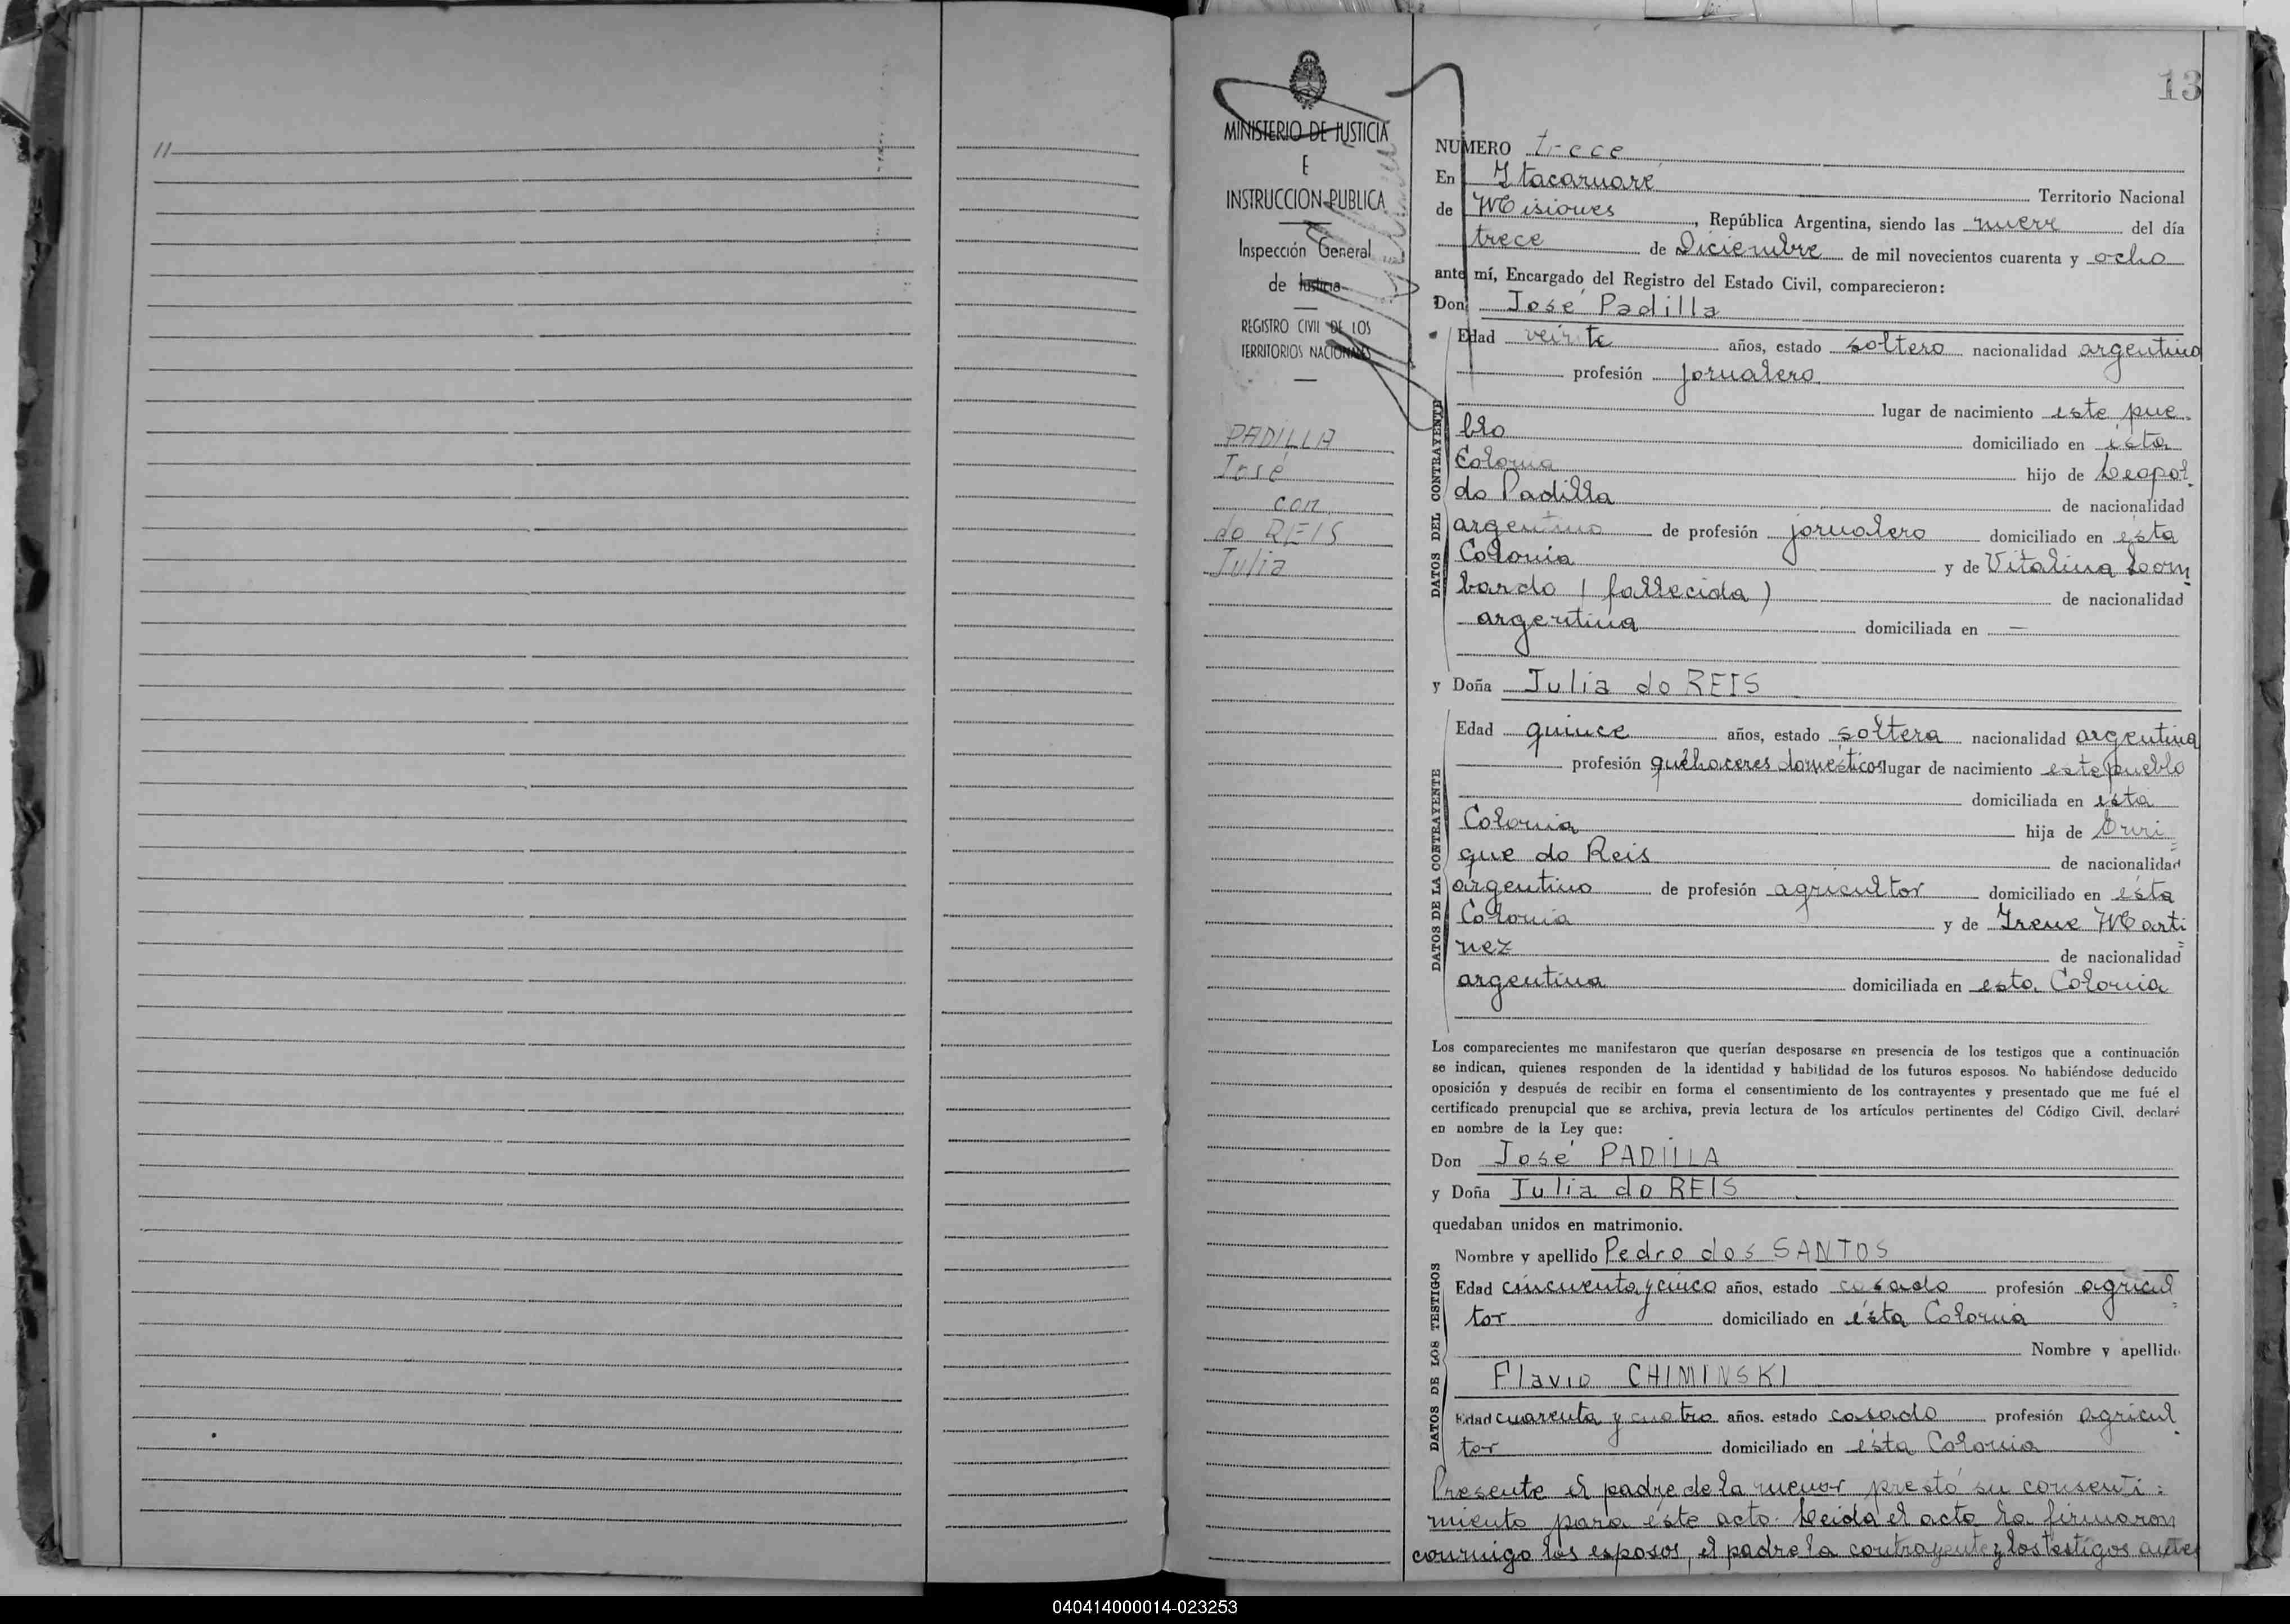 11
13
MINISTERIO DE JUSTICIA
E
INSTRUCCION PUBLICA
Inspección General
de Justicia
REGISTRO CIVIL DE LOS
TERRITORIOS NACIONALES
PADILLA
José
con
do REIS
Julia
NUMERO trece
En Itacaruaré Territorio Nacional
de Misiones, República Argentina, siendo las nueve del día
trece de Diciembre de mil novecientos cuarenta y ocho
ante mí, Encargado del Registro del Estado Civil, comparecieron:
Don José Padilla
DATOS DEL CONTRAYENTE
Edad veinte años, estado soltero nacionalidad argentina
profesión jornalero
lugar de nacimiento este pue-
blo domiciliado en ésta
Colonia hijo de Leopol-
do Padilla de nacionalidad
argentino de profesión jornalero domiciliado en ésta
Colonia y de Vitalina Lom-
bardo (fallecida) de nacionalidad
argentina domiciliada en —
y Doña Julia do REIS
DATOS DE LA CONTRAYENTE
Edad quince años, estado soltera nacionalidad argentina
profesión quehaceres domésticos lugar de nacimiento este pueblo
domiciliada en ésta
Colonia hija de Enri=
que do Reis de nacionalidad
argentino de profesión agricultor domiciliado en ésta
Colonia y de Irene Marti=
nez de nacionalidad
argentina domiciliada en esta Colonia
Los comparecientes me manifestaron que querían desposarse en presencia de los testigos que a continuación
se indican, quienes responden de la identidad y habilidad de los futuros esposos. No habiéndose deducido
oposición y después de recibir en forma el consentimiento de los contrayentes y presentado que me fué el
certificado prenupcial que se archiva, previa lectura de los artículos pertinentes del Código Civil, declaré
en nombre de la Ley que:
Don José PADILLA
y Doña Julia do REIS
quedaban unidos en matrimonio.
DATOS DE LOS TESTIGOS
Nombre y apellido Pedro dos SANTOS
Edad cincuenta y cinco años, estado casado profesión agricul=
tor domiciliado en ésta Colonia
Nombre y apellido
Flavio CHIMINSKI
Edad cuarenta y cuatro años, estado casado profesión agricul-
tor domiciliado en ésta Colonia
Presente el padre de la menor prestó su consenti=
miento para éste acto. Leida el acta la firmaron
conmigo los esposos, el padre la contrayente y los testigos antes
040414000014-023253